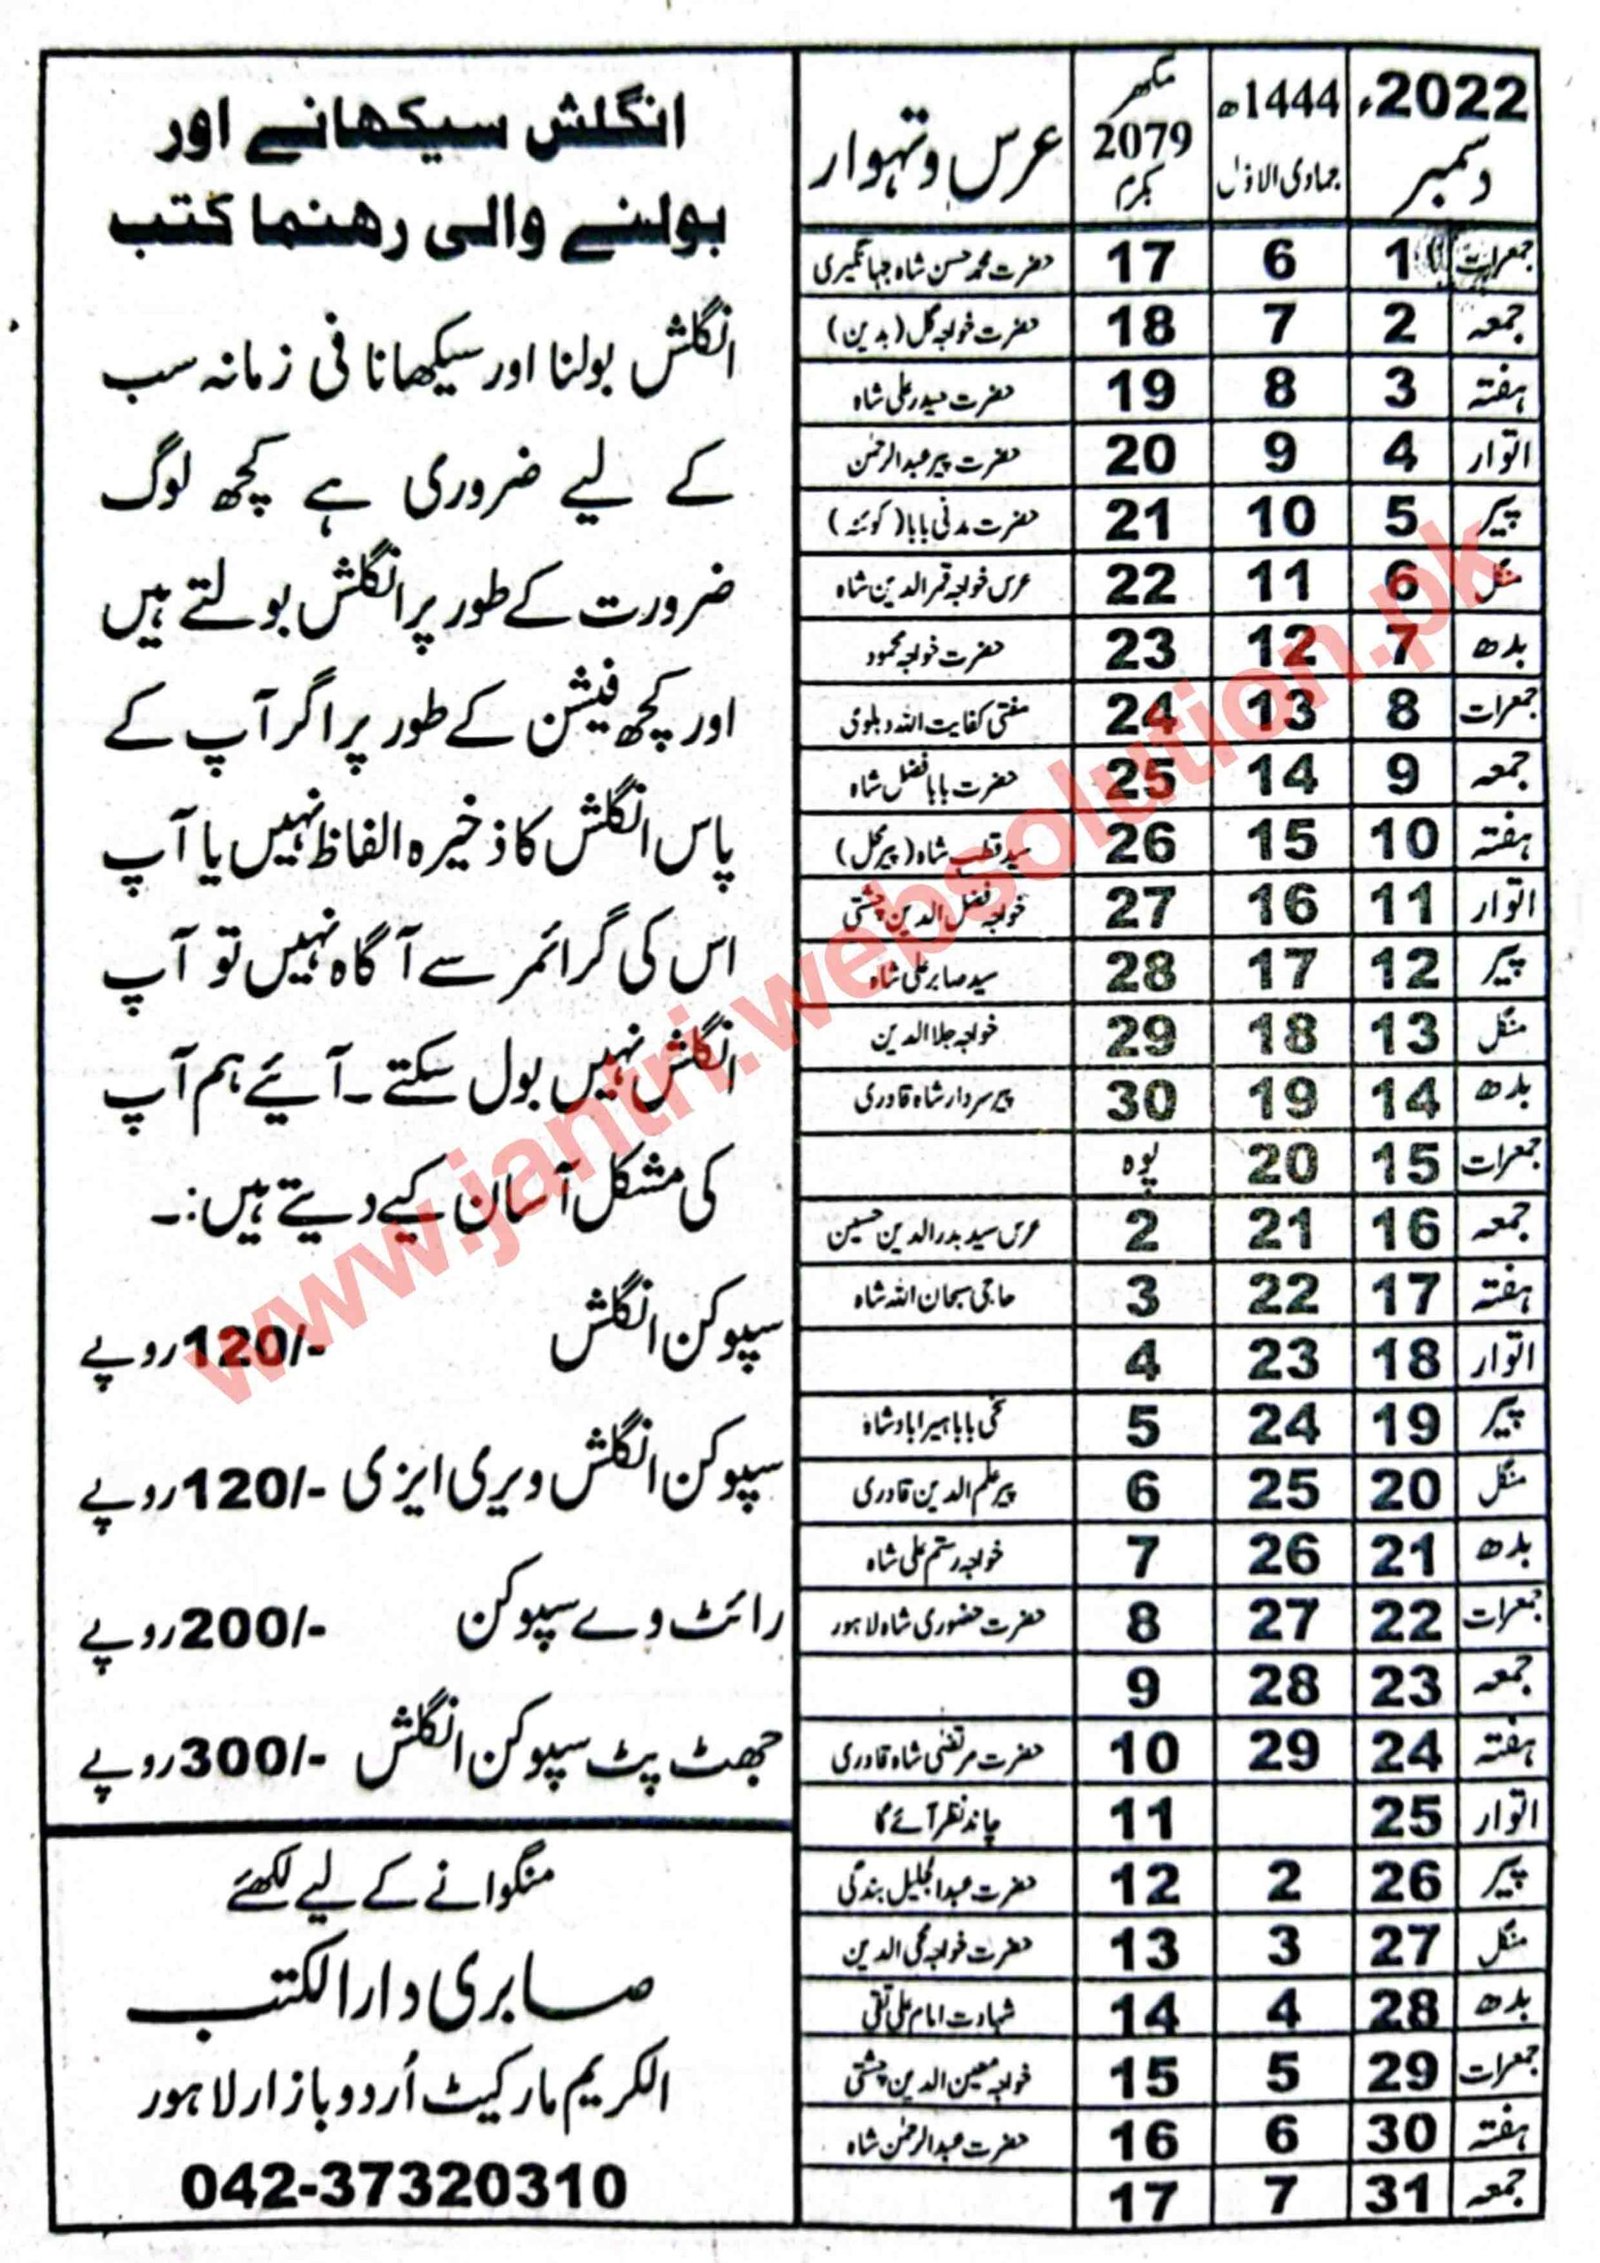 2022ء
دسمبر
1444ھ
جمادی الاوّل
مگھر
2079
بکرم
عرس وتہوار
جمعرات 1 6 17 حضرت محمد حسن شاہ جہانگیری
جمعہ 2 7 18 حضرت خواجہ گل (بدین)
ہفتہ 3 8 19 حضرت حیدر علی شاہ
اتوار 4 9 20 حضرت پیر عبدالرحمٰن
پیر 5 10 21 حضرت مدنی بابا (کوئٹہ)
منگل 6 11 22 عرس خواجہ قمر الدین شاہ
بدھ 7 12 23 حضرت خواجہ محمود
جمعرات 8 13 24 مفتی کفایت اللہ دہلوی
جمعہ 9 14 25 حضرت بابا فضل شاہ
ہفتہ 10 15 26 سید قطب شاہ (پیر محل)
اتوار 11 16 27 خواجہ فضل الدین چشتی
پیر 12 17 28 سید صابر علی شاہ
منگل 13 18 29 خواجہ جلاالدین
بدھ 14 19 30 پیر سردار شاہ قادری
جمعرات 15 20 پوہ
جمعہ 16 21 2 عرس سید بدر الدین حسین
ہفتہ 17 22 3 حاجی سبحان اللہ شاہ
اتوار 18 23 4
پیر 19 24 5 سخی بابا ہیرا بادشاہ
منگل 20 25 6 پیر علم الدین قادری
بدھ 21 26 7 خواجہ رستم علی شاہ
جمعرات 22 27 8 حضرت حضوری شاہ لاہور
جمعہ 23 28 9
ہفتہ 24 29 10 حضرت مرتضٰی شاہ قادری
اتوار 25 11 چاند نظر آئے گا
پیر 26 2 12 حضرت عبدالجلیل بندگی
منگل 27 3 13 حضرت خواجہ محی الدین
بدھ 28 4 14 شہادت امام علی نقی
جمعرات 29 5 15 خواجہ معین الدین چشتی
ہفتہ 30 6 16 حضرت عبدالرحمٰن شاہ
جمعہ 31 7 17
انگلش سیکھانے اور
بولنے والی رھنما کتب
انگلش بولنا اور سیکھانا فی زمانہ سب
کے لیے ضروری ہے کچھ لوگ
ضرورت کے طور پر انگلش بولتے ہیں
اور کچھ فیشن کے طور پر اگر آپ کے
پاس انگلش کا ذخیرہ الفاظ نہیں یا آپ
اس کی گرائمر سے آگاہ نہیں تو آپ
انگلش نہیں بول سکتے۔ آیئے ہم آپ
کی مشکل آسان کیے دیتے ہیں:۔
سپوکن انگلش 120/- روپے
سپوکن انگلش ویری ایزی 120/- روپے
رائٹ وے سپوکن 200/- روپے
جھٹ پٹ سپوکن انگلش 300/- روپے
منگوانے کے لیے لکھئے
صابری دارالکتب
الکریم مارکیٹ اُردو بازار لاہور
042-37320310
www.jantri.websolution.pk